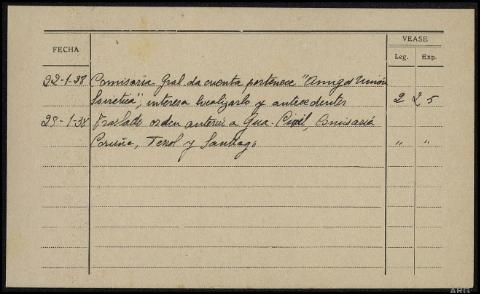 VEASE
FECHA
Leg. Exp.
22-1-38 Comisaria Gral da cuenta pertenece "Amigos Unión
Sovietica", interesa localizarlo y antecedentes 2 25
25-1-38 Traslado orden anterior a Gua. Civil, Comisaria
Coruña, Ferrol y Santiago " "